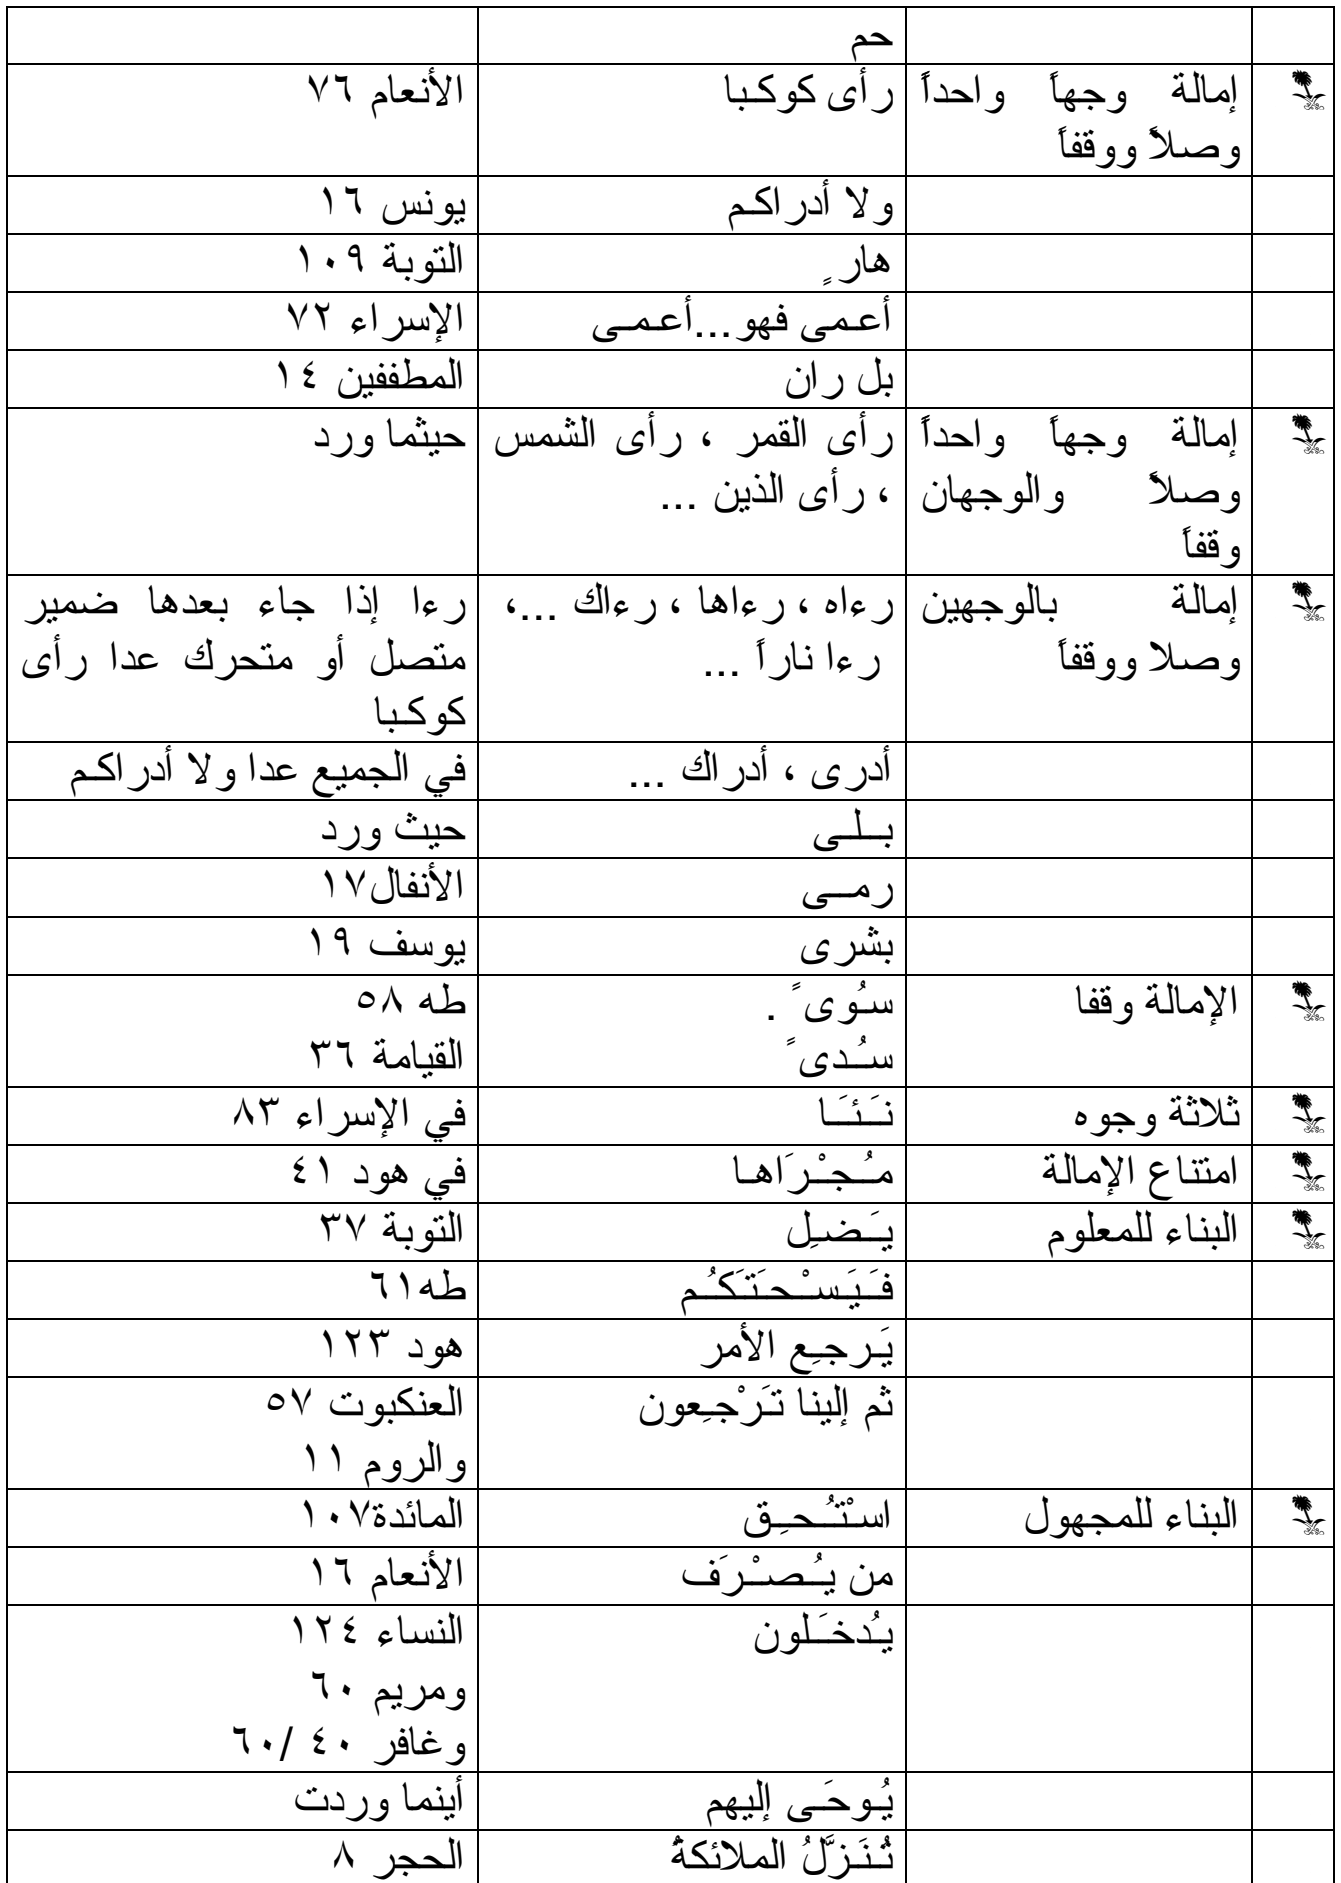 حم
إمالة وجهاً واحداً رأى كوكبا الأنعام ٧٦
وصلاً ووقفاً
ولا أدراكم يونس ١٦
هارٍ التوبة ١٠٩
أعمى فهو...أعمى الإسراء ٧٢
بل ران المطففين ١٤
إمالة وجهاً واحداً رأى القمر ، رأى الشمس حيثما ورد
وصلاً والوجهان ، رأى الذين ...
وقفاً
إمالة بالوجهين رءاه ، رءاها ، رءاك ...، رءا إذا جاء بعدها ضمير
وصلا ووقفاً رءا ناراً ... متصل أو متحرك عدا رأى
كوكبا
أدرى ، أدراك ... في الجميع عدا ولا أدراكم
بلى حيث ورد
رمى الأنفال١٧
بشرى يوسف ١٩
الإمالة وقفا سُوىً . طه ٥٨
سُدىً القيامة ٣٦
ثلاثة وجوه نَئَا في الإسراء ٨٣
امتناع الإمالة مُجْرَاها في هود ٤١
البناء للمعلوم يَضِل التوبة ٣٧
فَيَسْحَتَكُم طه٦١
يَرجِع الأمر هود ١٢٣
ثم إلينا تَرْجِعون العنكبوت ٥٧
والروم ١١
البناء للمجهول اسْتُحِق المائدة١٠٧
من يُصْرَف الأنعام ١٦
يُدخَلون النساء ١٢٤
ومريم ٦٠
وغافر ٤٠ /٦٠
يُوحَى إليهم أينما وردت
تُنَزَّلُ الملائكةُ الحجر ٨